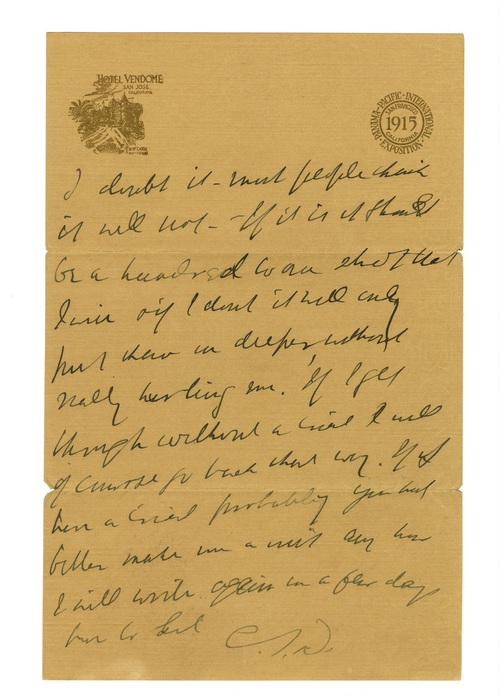 HOTEL VENDOME
SAN JOSE
CALIFORNIA
PANAMA-PACIFIC-INTERNATIONAL EXPOSITION
SAN FRANCISCO
1915
CALIFORNIA
I doubt it - most people think
it will not - If it is it should
be a hundred to one shot that
I win & if I dont it will only
put them in deeper without
really hurting me. If I get
through without a trial I will
of course go back that way. If I
have a trial probably you had
better make me a visit any how
I will write again in a few days
C.S.D.